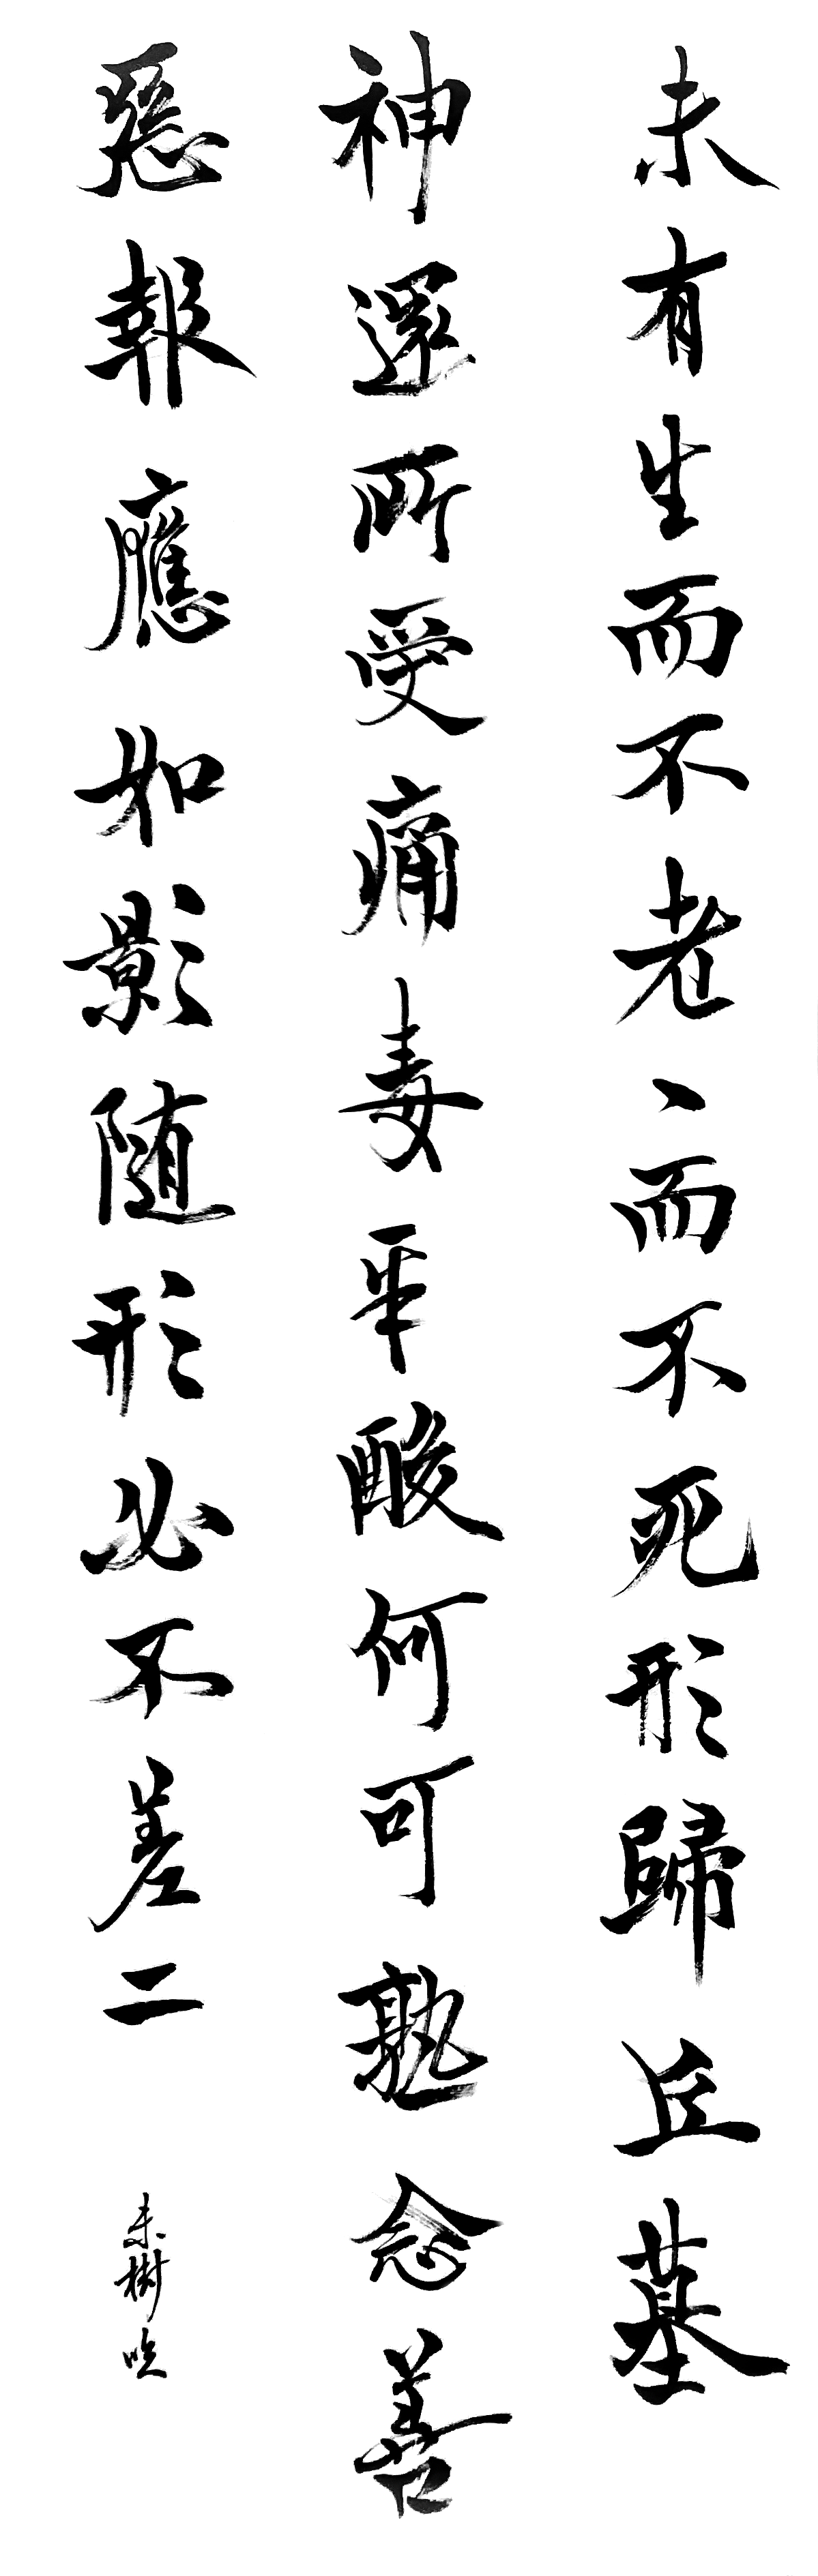 未有生而不老、而不死形歸丘墓
神還所受痛毒辛酸何可熟念善
惡報應如影随形必不差二